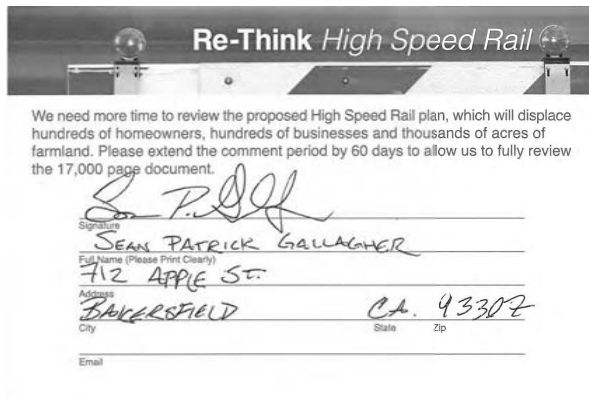 Re-Think High Speed Rail
We need more time to review the proposed High Speed Rail plan, which will displace
hundreds of homeowners, hundreds of businesses and thousands of acres of
farmland. Please extend the comment period by 60 days to allow us to fully review
the 17,000 page document.
Signature
SEAN PATRICK GALLAGHER
Full Name (Please Print Clearly)
712 APPLE ST.
Address
BAKERSFIELD CA. 93307
City State Zip
Email